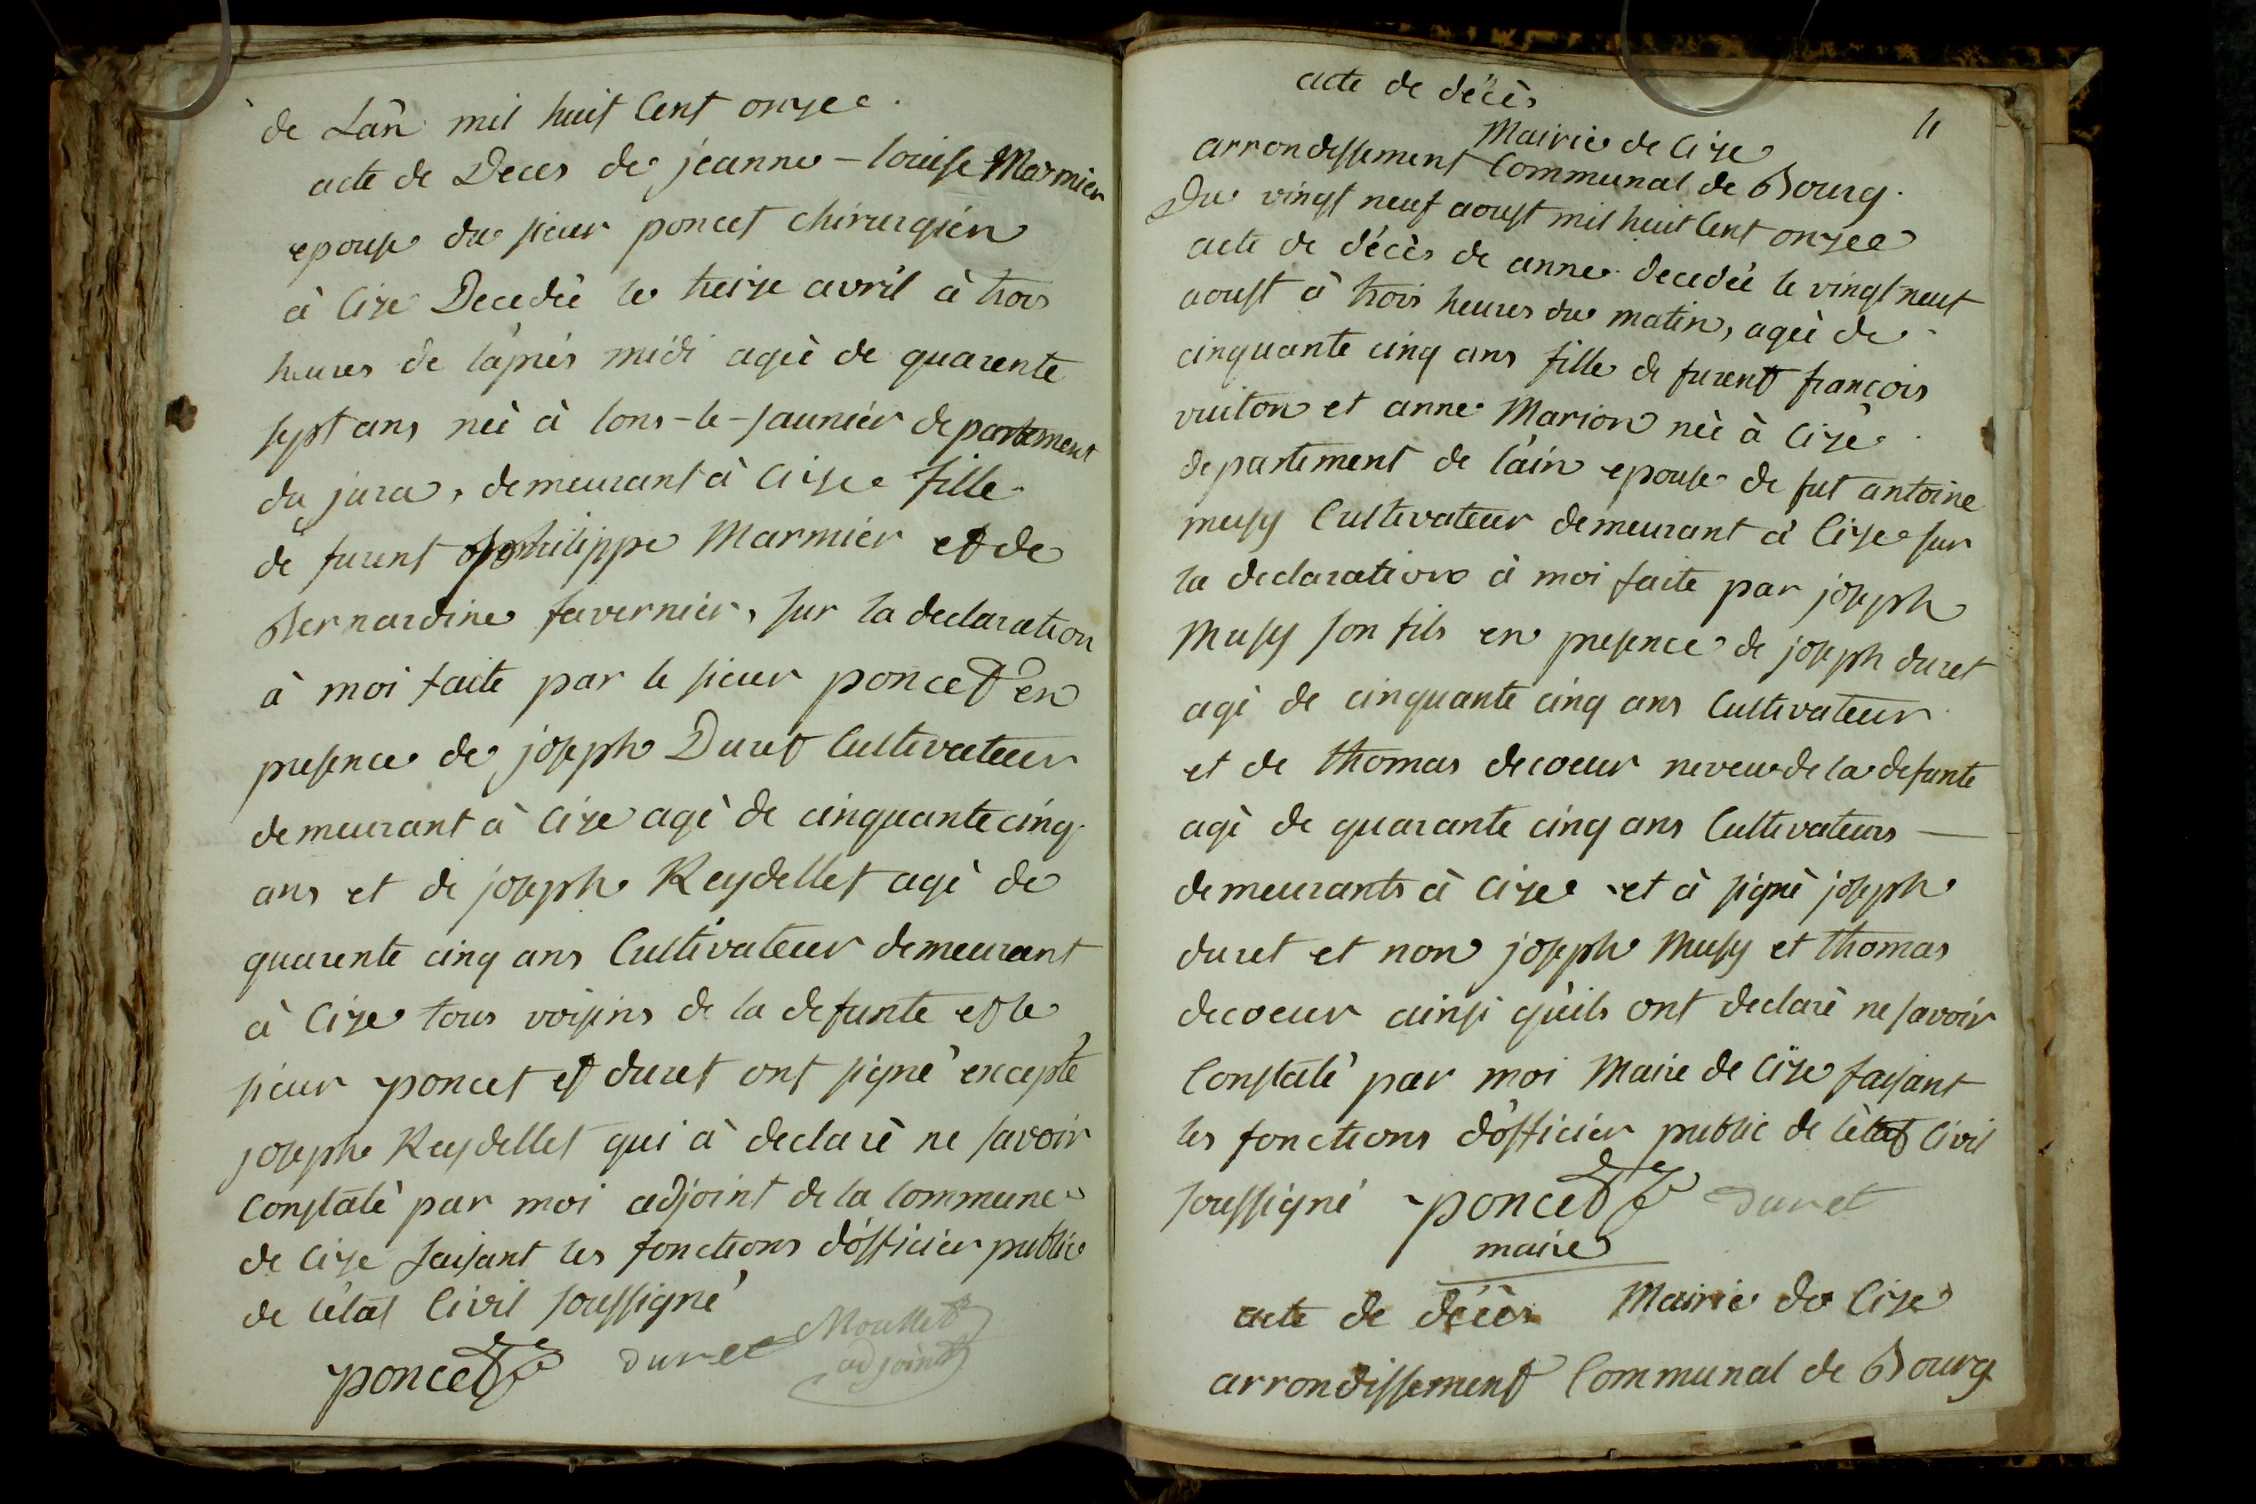 de Lân mil huit Cent onze
acte de Deces de jeanne - louise Marmier
epouse du sieur poncet chirurgien
à Cize Decedée le treize avril à trois
heures de l'aprés midi agée de quarente
sept ans née à lons-le-saunier departement
du jura, demeurant à Cize fille
de furent philippe Marmier et de
Bernardine favernier, sur la declaration
à moi faite par le sieur poncet en
presence de joseph Duret Cultivateur
demeurant à Cize agé de cinquante cinq
ans et de joseph Reydellet agé de
quarente cinq ans Cultivateur demeurant
à Cize tous voisins de la defunte et le
sieur poncet et duret ont signé excepté
joseph Reydellet qui à declaré ne savoir
Constaté par moi adjoint de la Commune
de Cize faisant les fonctions d'officier public
de l'état Civil soussigné
poncet duret Moullet
adjoint
acte de décès
11
Mairie de Cize
arrondissement Communal de Bourg.
Du vingt neuf aoust mil huit Cent onze
acte de décès de anne decedée le vingt neuf
aoust à trois heures du matin, agée de
cinquante cinq ans fille de furent françois
vuiton et anne Marion née à Cize
departement de l'ain epouse de fut antoine
musy Cultivateur demeurant à Cize sur
la declaration à moi faite par joseph
Musy son fils en presence de joseph duret
agé de cinquante cinq ans Cultivateur
et de thomas decoeur neveu de la defunte
agé de quarante cinq ans Cultivateurs —
demeurants à Cize et à signé joseph
duret et non joseph Musy et thomas
decoeur ainsi qu'ils ont declaré ne savoir
Constaté par moi Maire de Cize faisant
les fonctions d'officier public de l'état Civil
soussigné poncet duret
maire
acte de décès Mairie de Cize
arrondissement Communal de Bourg